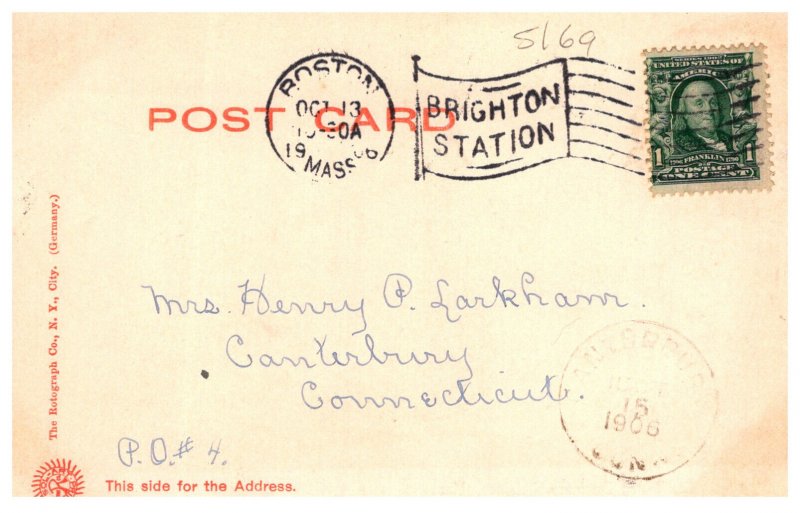 5169
POST CARD
BOSTON
OCT 13
19 06
MASS
BRIGHTON
STATION
SERIES 1902
UNITED STATES OF
AMERICA
1 FRANKLIN 1
POSTAGE
ONE CENT
The Rotograph Co., N. Y., City. (Germany.)
Mrs. Henry P. Larkham.
Canterbury
Connecticut.
15
1906
CONN
P.O. # 4.
This side for the Address.